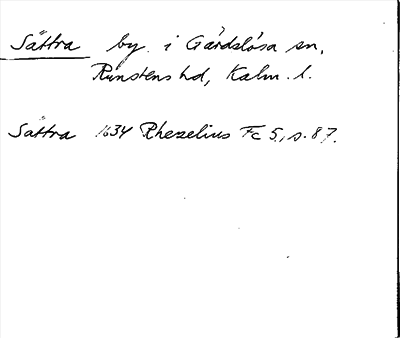 Sättra by i Gärdslösa sn,
Runstens hd, Kalm. l.
Såttra 1634 Rhezelius Fc 5, s. 87.